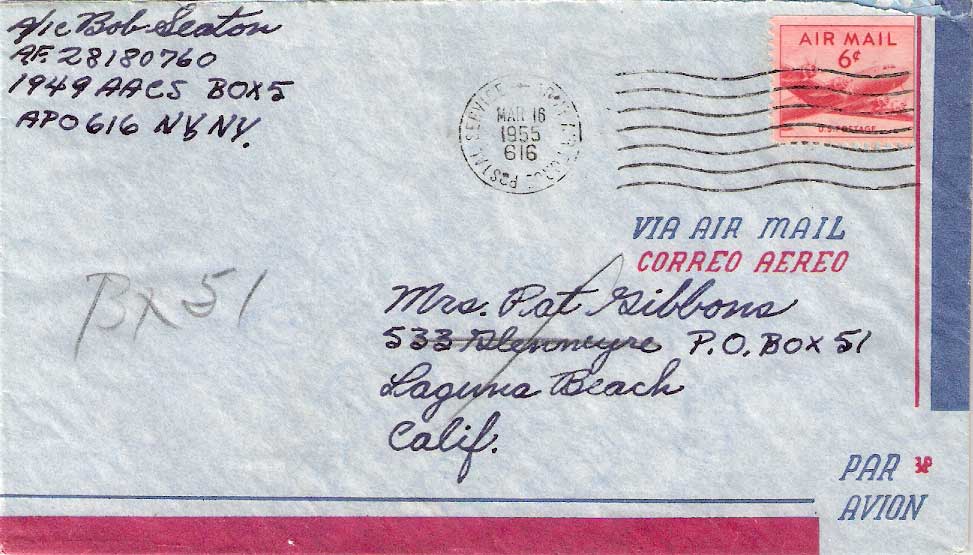 A/1c Bob Seaton
AF. 28180760
1949 AACS BOX 5
APO 616 NY NY.
AIR MAIL
6¢
U.S. POSTAGE
POSTAL SERVICE
MAR 16
1955
616
VIA AIR MAIL
CORREO AEREO
Bx 51
Mrs. Pat Gibbons
533 Glenneyre P.O. BOX 51
Laguna Beach
Calif.
PAR
AVION